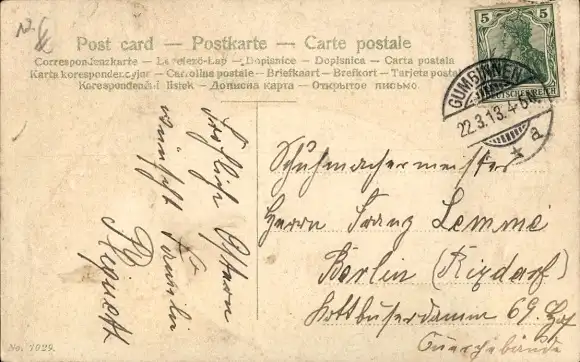 Post card — Postkarte — Carte postale
Correspondenzkarte — Levelező-Lap — Dopisnice — Dopisnica — Carta postale
Karta korespondencyjna — Carolina postale — Briefkaart — Brefkort — Tarjeta postal
Korespondenční lístek — Дописна карта — Открытое письмо
5
DEUTSCHES REICH
GUMBINNEN
22.3.13. 4-5N.
* a
Schuhmachermeister
Herrn Franz Lemme
Berlin (Rixdorf)
Kottbuserdamm 69. Hof
Quergebäude
Fröhliche Ostern
wünscht Familie
No. 7029.